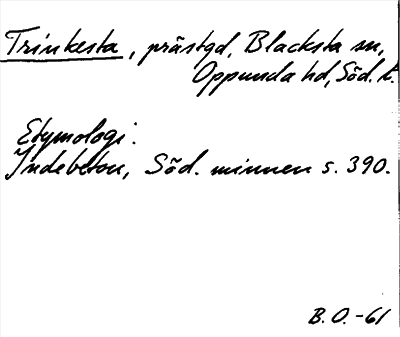 Trinkesta, prästgd, Blacksta sn,
Oppunda hd, Söd. l.
Etymologi.
Indebetou, Söd. minnen s. 390.
B. O. -61